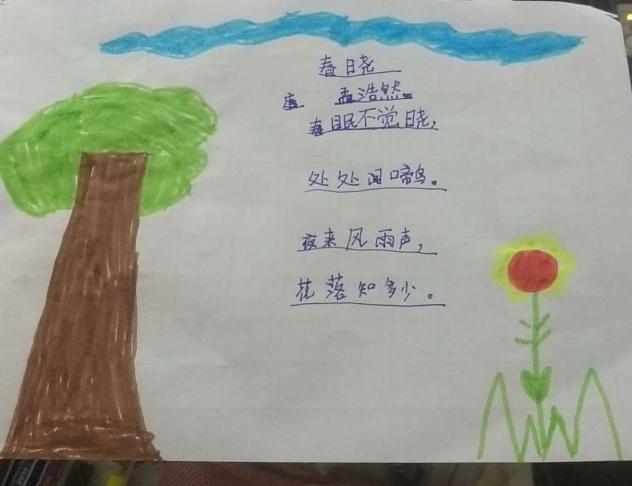 春日晓
唐 孟浩然
春眠不觉晓，
处处闻啼鸟。
夜来风雨声，
花落知多少。